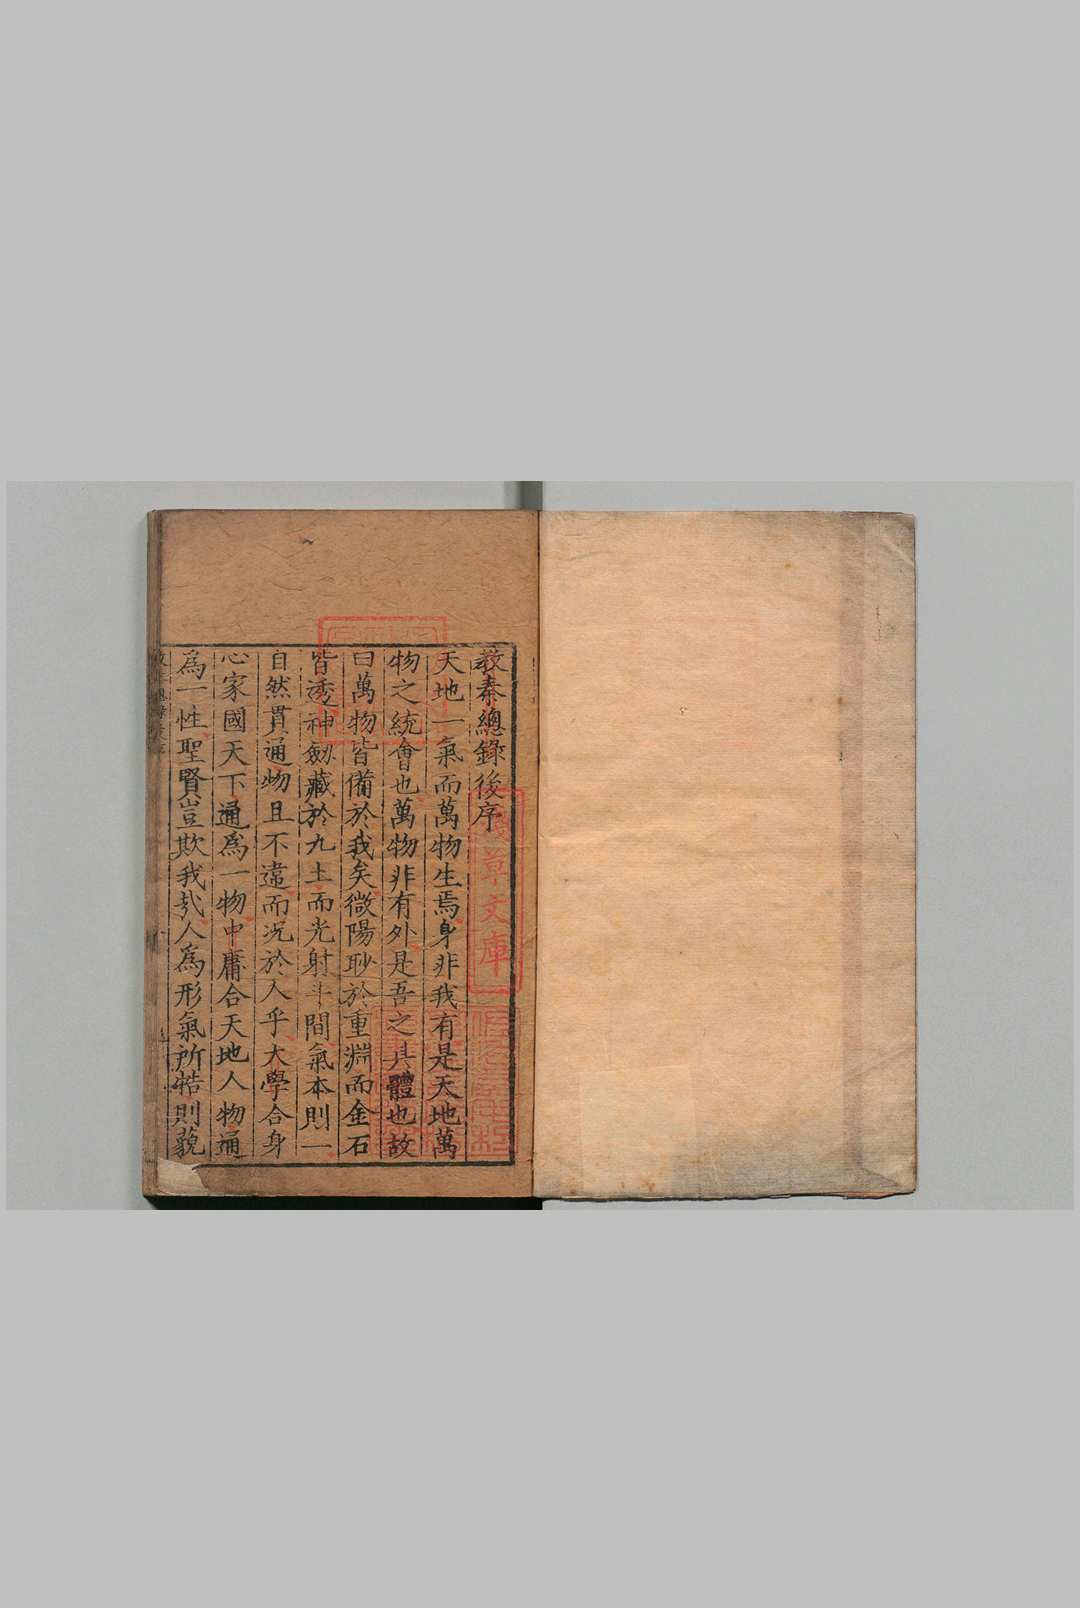 教秦總錄後序
天地一氣而萬物生焉身非我有是天地萬
物之統會也萬物非有外是吾之具體也故
曰萬物皆備於我矣微陽眇於重淵而金石
皆透神劒藏於九土而光射斗間氣本則一
自然貫通物且不違而況於人乎大學合身
心家國天下通爲一物中庸合天地人物通
爲一性聖賢豈欺我哉人爲形氣所牿則藐
淺草文庫